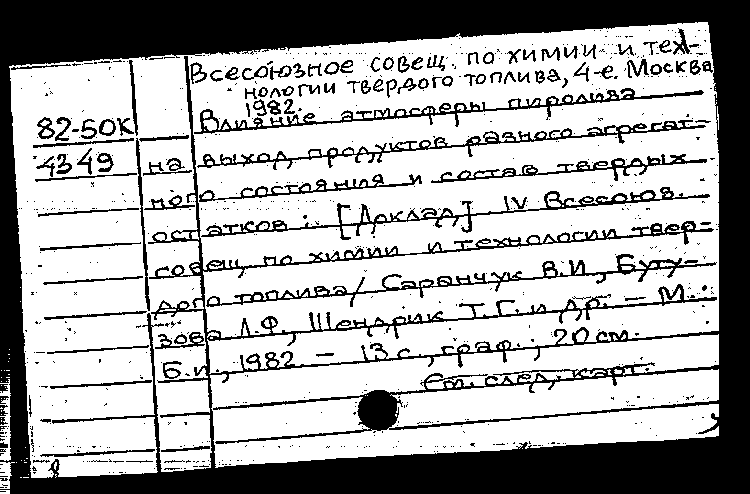 Всесоюзное совещ. по химии и тех-
нологии твердого топлива, 4-е. Москва
1982.
82-50К Влияние атмосферы пиролиза
4349 на выход продуктов разного агрегат=
ного состояния и состав твердых
остатков: [Доклад] IV Всесоюз.
совещ. по химии и технологии твер=
дого топлива/ Саранчук В.И., Буту=
зова Л.Ф., Шендрик Т.Г. и др. – М.:
Б.и., 1982 – 13 с., граф.; 20 см.
См. след. карт.
8